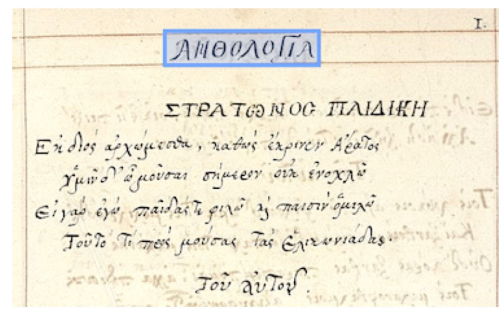 1.
ΑΝΘΟΛΟΓΙΑ
ΣΤΡΑΤΩΝΟϹ ΠΑΙΔΙΚΗ
Ἐκ διὸς ἀρχώμεσθα, καθὼς ἔκρινεν Ἄρατος
Ὑμῖν δ' ὦ μοῦσαι σήμερον οὐκ ἐνοχλῶ
Εἰ γὰρ ἐγὼ παῖδας τε φιλῶ καὶ παισὶν ὁμιλῶ
Τοῦτο τί πρὸς μούσας τὰς Ἑλικωνιάδας
Τοῦ αὐτοῦ.